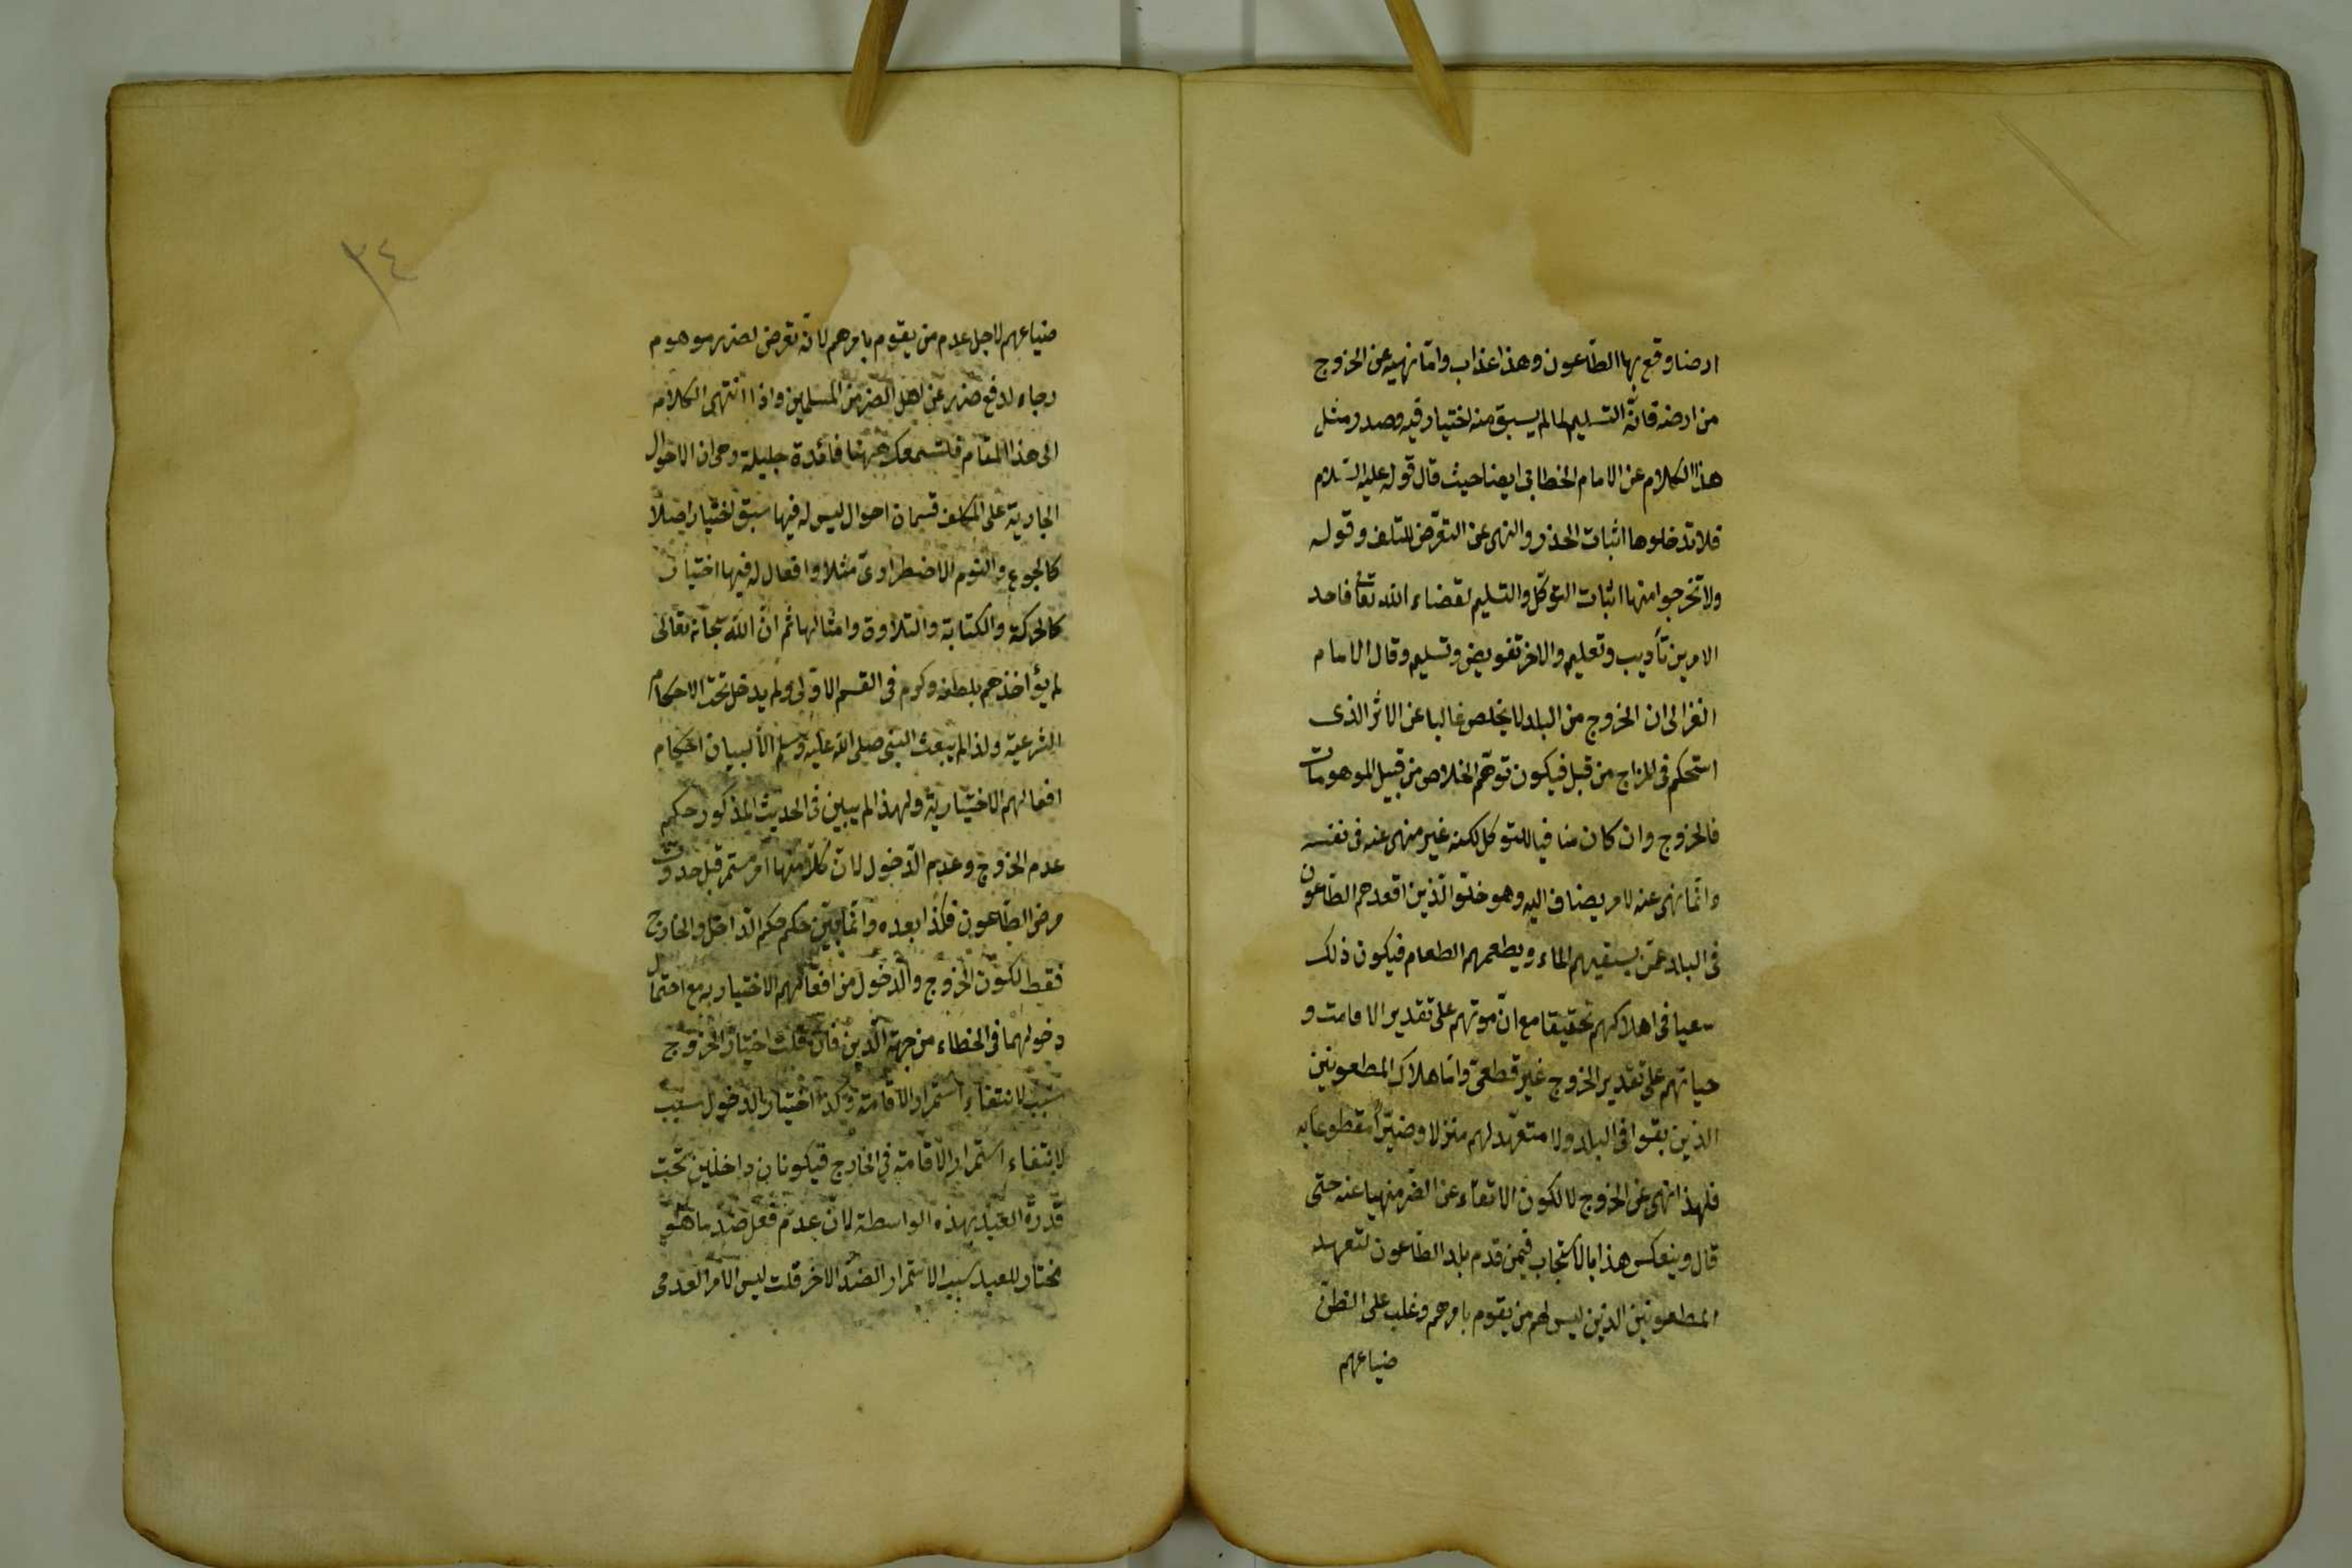 ارضا وقع بها الطاعون وهذا عذاب واما نهيه عن الخروج
من ارضه فانه التسليم لما لم يسبق منه اختيار فيه وصدر مثل
هذا الكلام عن الامام الخطابى ايضا حيث قال قوله عليه السلام
فلا تدخلوها اثبات الحذر والنهى عن التعرض للتلف وقوله
ولا تخرجوا منها اثبات التوكل والتسليم لقضاء الله تعا فاحد
الامرين تأديب وتعليم والاخر تفويض وتسليم وقال الامام
الغزالى ان الخروج من البلد لا يخلص غالبا عن الاثر الذى
استحكم فى المزاج من قبل فيكون توهم الخلاص من قبيل الموهومات
فالخروج وان كان منافيا للتوكل لكنه غير منهى عنه فى نفسه
وانما نهى عنه لامر يضاف اليه وهو خلو الذين اقعدهم الطاعون
فى البلد عمن يسقيهم الماء ويطعمهم الطعام فيكون ذلك
سعيا فى اهلاكهم تحقيقا مع ان موتهم على تقدير الاقامت و
حياتهم على تقدير الخروج غير قطعى واما هلاك المطعونين
الذين بقوا فى البلد ولا متعهد لهم منزلا وضررا مقطوعا به
فلهذا نهى عن الخروج لا لكون الاتقاء عن الضر منهيا عنه حتى
قال وينعكس هذا بالاستحباب فيمن قدم بلد الطاعون لتعهد
المطعونين الذين ليس لهم من يقوم بامرهم وغلب على الظن
ضياعهم
٣٤
ضياعهم لاجل عدم من يقوم بامرهم لانه تعرض لضرر موهوم
رجاء لدفع ضرر عن اهل الضر من المسلمين واذا انتهى الكلام
الى هذا المقام فلنسمعك ههنا فائدة جليلة وهى ان الاحوال
الجارية على المكلف قسمان احوال ليس له فيها سبق اختيار اصلا
كالجوع والنوم الاضطراوى مثلا وافعال له فيها اختيار
كالحركة والكتابة والتلاوة وامثالها ثم ان الله سبحانه تعالى
لم يؤاخذهم بلطفه وكرم فى القسم الاولى ولم يدخل تحت الاحكام
الشرعية ولذا لم يبعث النبى صلى الله عليه وسلم الا لبيان احكام
افعالهم الاختيارية ولهذا لم يبين فى الحديث المذكور حكم
عدم الخروج وعدم الدخول لان كلا منهما امر مستمر قبل حدوث
مرض الطاعون فكذا بعده وانما بين حكم حكم الداخل والخارج
فقط لكون الخروج والدخول من افعالهم الاختياريه مع احتمال
دخولهما فى الخطاء من جهة الدين فان قلت اختيار الخروج
سبب لانتفاء استمرار الاقامة وكذا اختيار الدخول سبب
لانتفاء استمرار الاقامة فى الخارج فيكونان داخلين تحت
قدرة العبد بهذه الواسطة لان عدم فعل ضد ما هو
مختار للعبد سبب الاستمرار الضد الاخر قلت ليس الامر العدمى